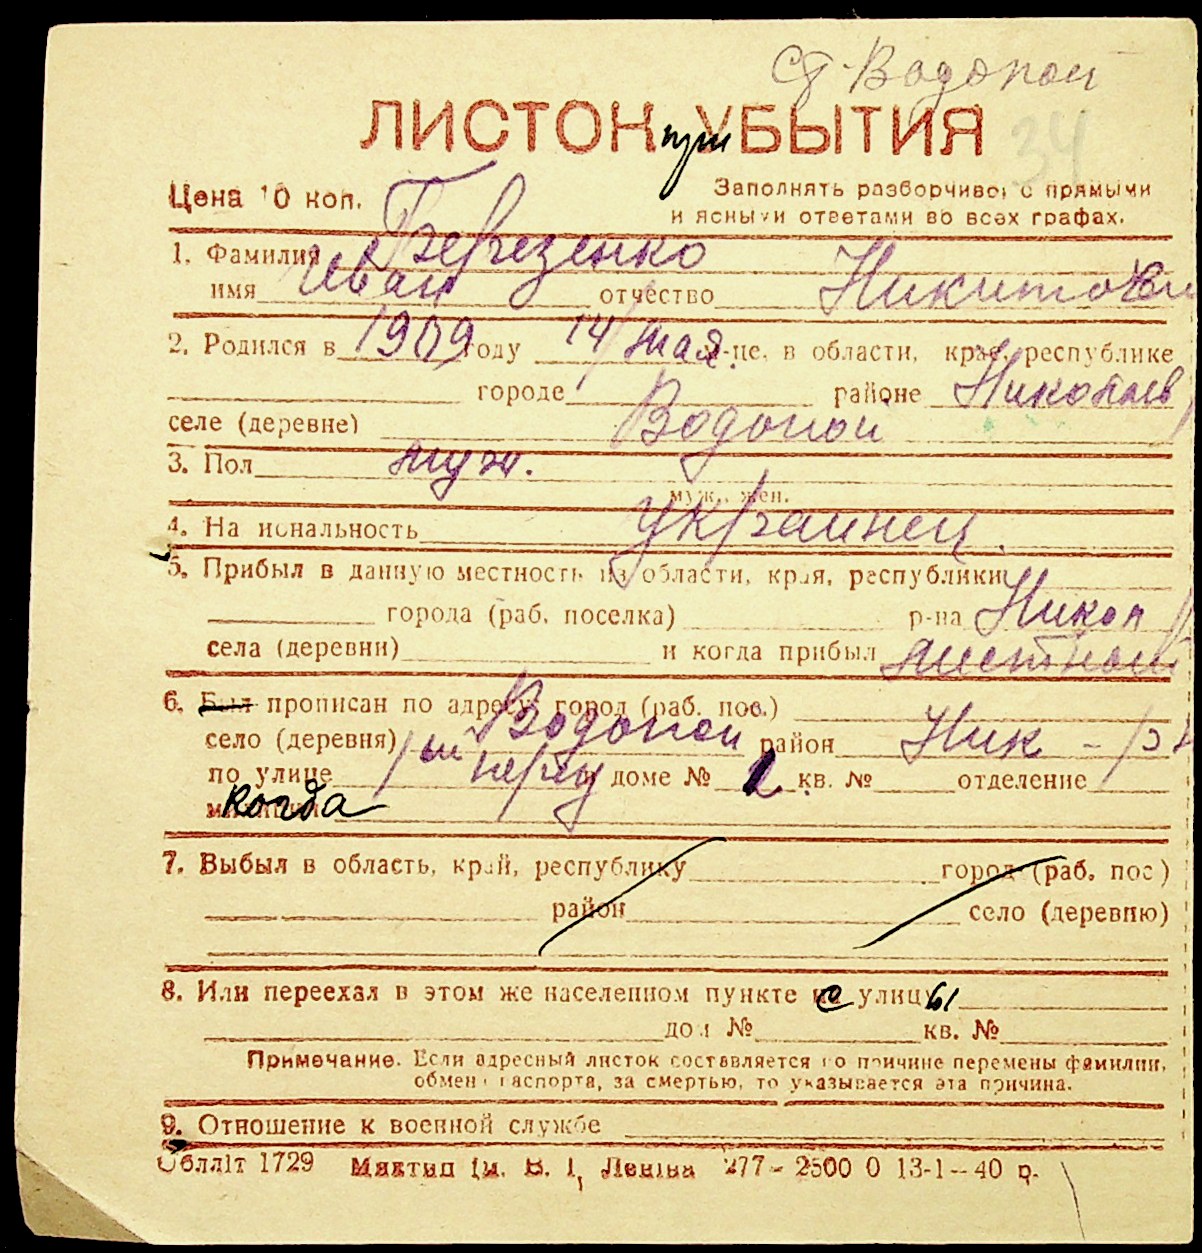 ст. Водопой
ЛИСТОК при УБЫТИЯ
34
Цена 10 коп. Заполнять разборчиво, с прямыми
и ясными ответами во всех графах.
1. Фамилия Березенко
имя Иван отчество Никитович
2. Родился в 1909 году 14/мая м-це, в области, крае, республике
городе районе Николаев
селе (деревне) Водопой
3. Пол муж.
муж., жен.
4. Национальность украинец.
5. Прибыл в данную местность из области, края, республики
города (раб. поселка) р-на Никол
села (деревни) и когда прибыл местный
6. Был прописан по адресу: город (раб. пос.)
село (деревня) Водопой район Ник - р-н
по улице 1ый переу в доме № 2 кв. № отделение
милиции когда
7. Выбыл в область, край, республику город (раб. пос)
район село (деревню)
8. Или переехал в этом же населенном пункте на с улицу ы
дом № кв. №
Примечание. Если адресный листок составляется по причине перемены фамилии,
обмена паспорта, за смертью, то указывается эта причина.
9. Отношение к военной службе
Облліт 1729 Миктип ім. В. І. Леніна 277 - 2500 0 13-1-40 р.